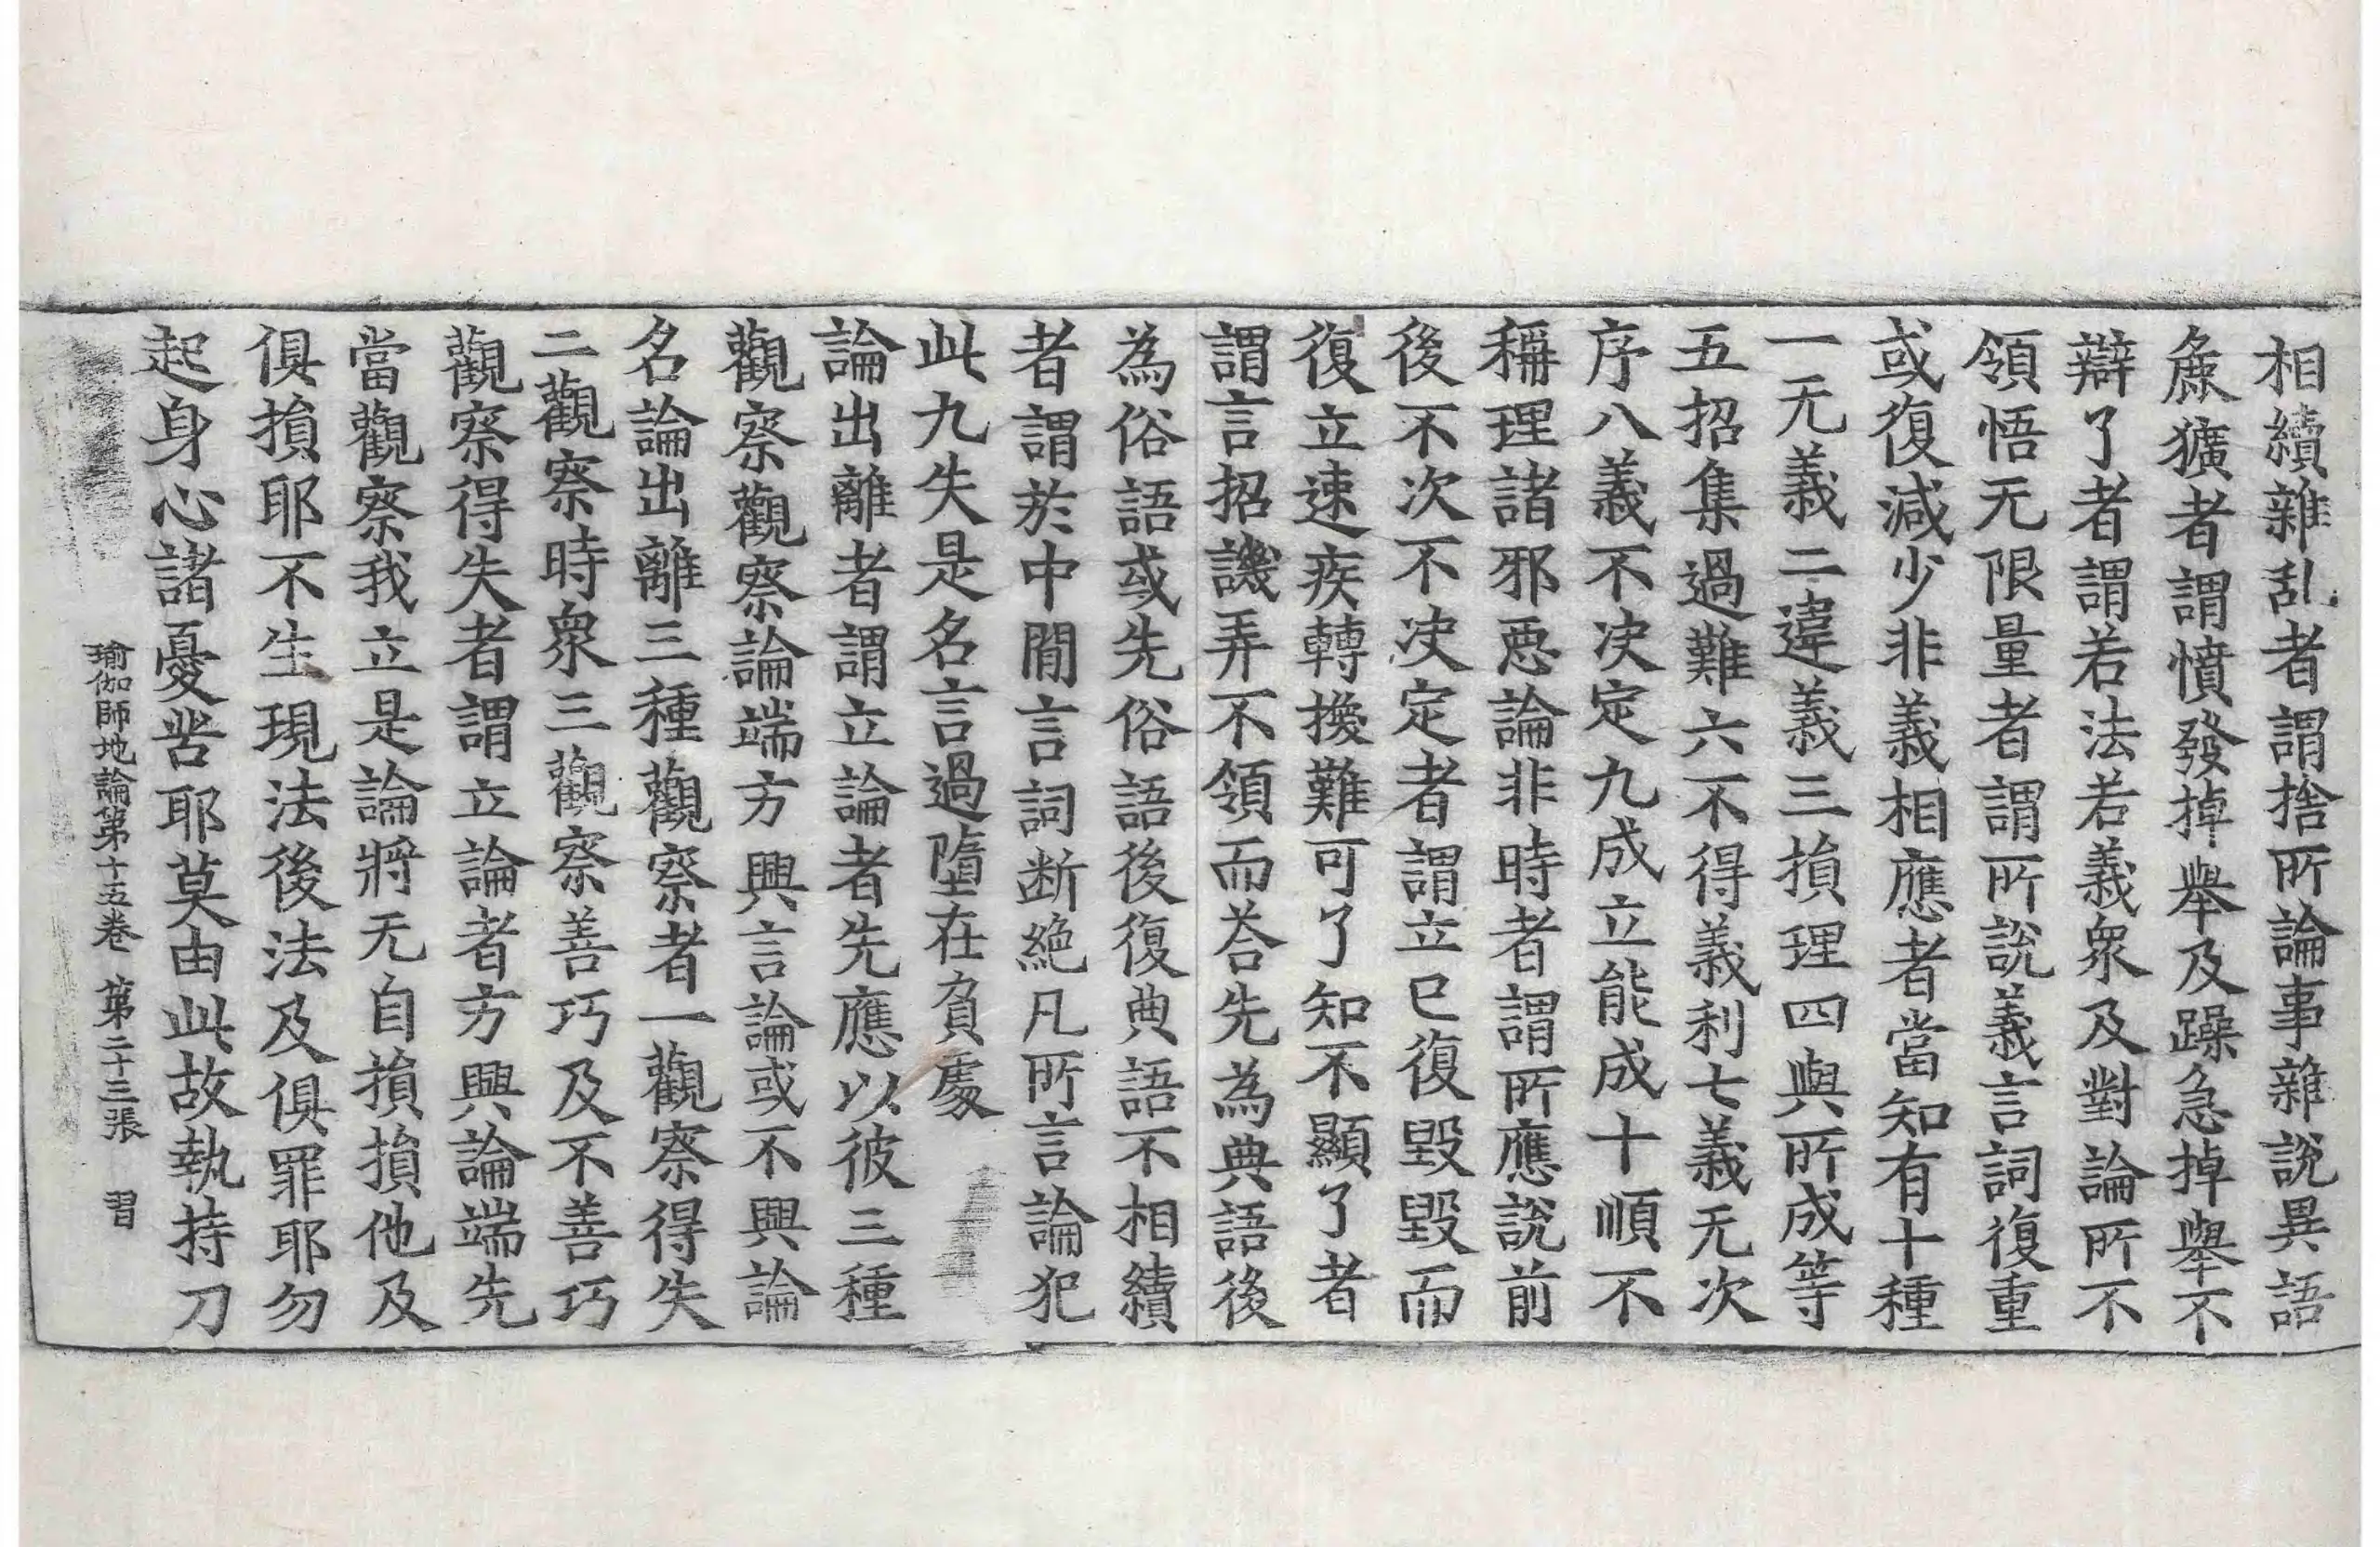 相續雜乱者謂捨所論事雜說異語
麁獷者謂憤發掉舉及躁急掉舉不
辯了者謂若法若義衆及對論所不
領悟无限量者謂所說義言詞復重
或復減少非義相應者當知有十種
一无義二違義三損理四與所成等
五招集過難六不得義利七義无次
序八義不决定九成立能成十順不
稱理諸邪惡論非時者謂所應說前
後不次不决定者謂立已復毀毀而
復立速疾轉換難可了知不顯了者
謂言招譏弄不領而荅先為典語後
為俗語或先俗語後復典語不相續
者謂於中間言詞断絶凡所言論犯
此九失是名言過墮在負處
論出離者謂立論者先應以彼三種
觀察觀察論端方興言論或不興論
名論出離三種觀察者一觀察得失
二觀察時衆三觀察善巧及不善巧
觀察得失者謂立論者方興論端先
當觀察我立是論將无自損損他及
俱損耶不生現法後法及俱罪耶勿
起身心諸憂苦耶莫由此故執持刀
瑜伽師地論第十五卷 第二十三張 習